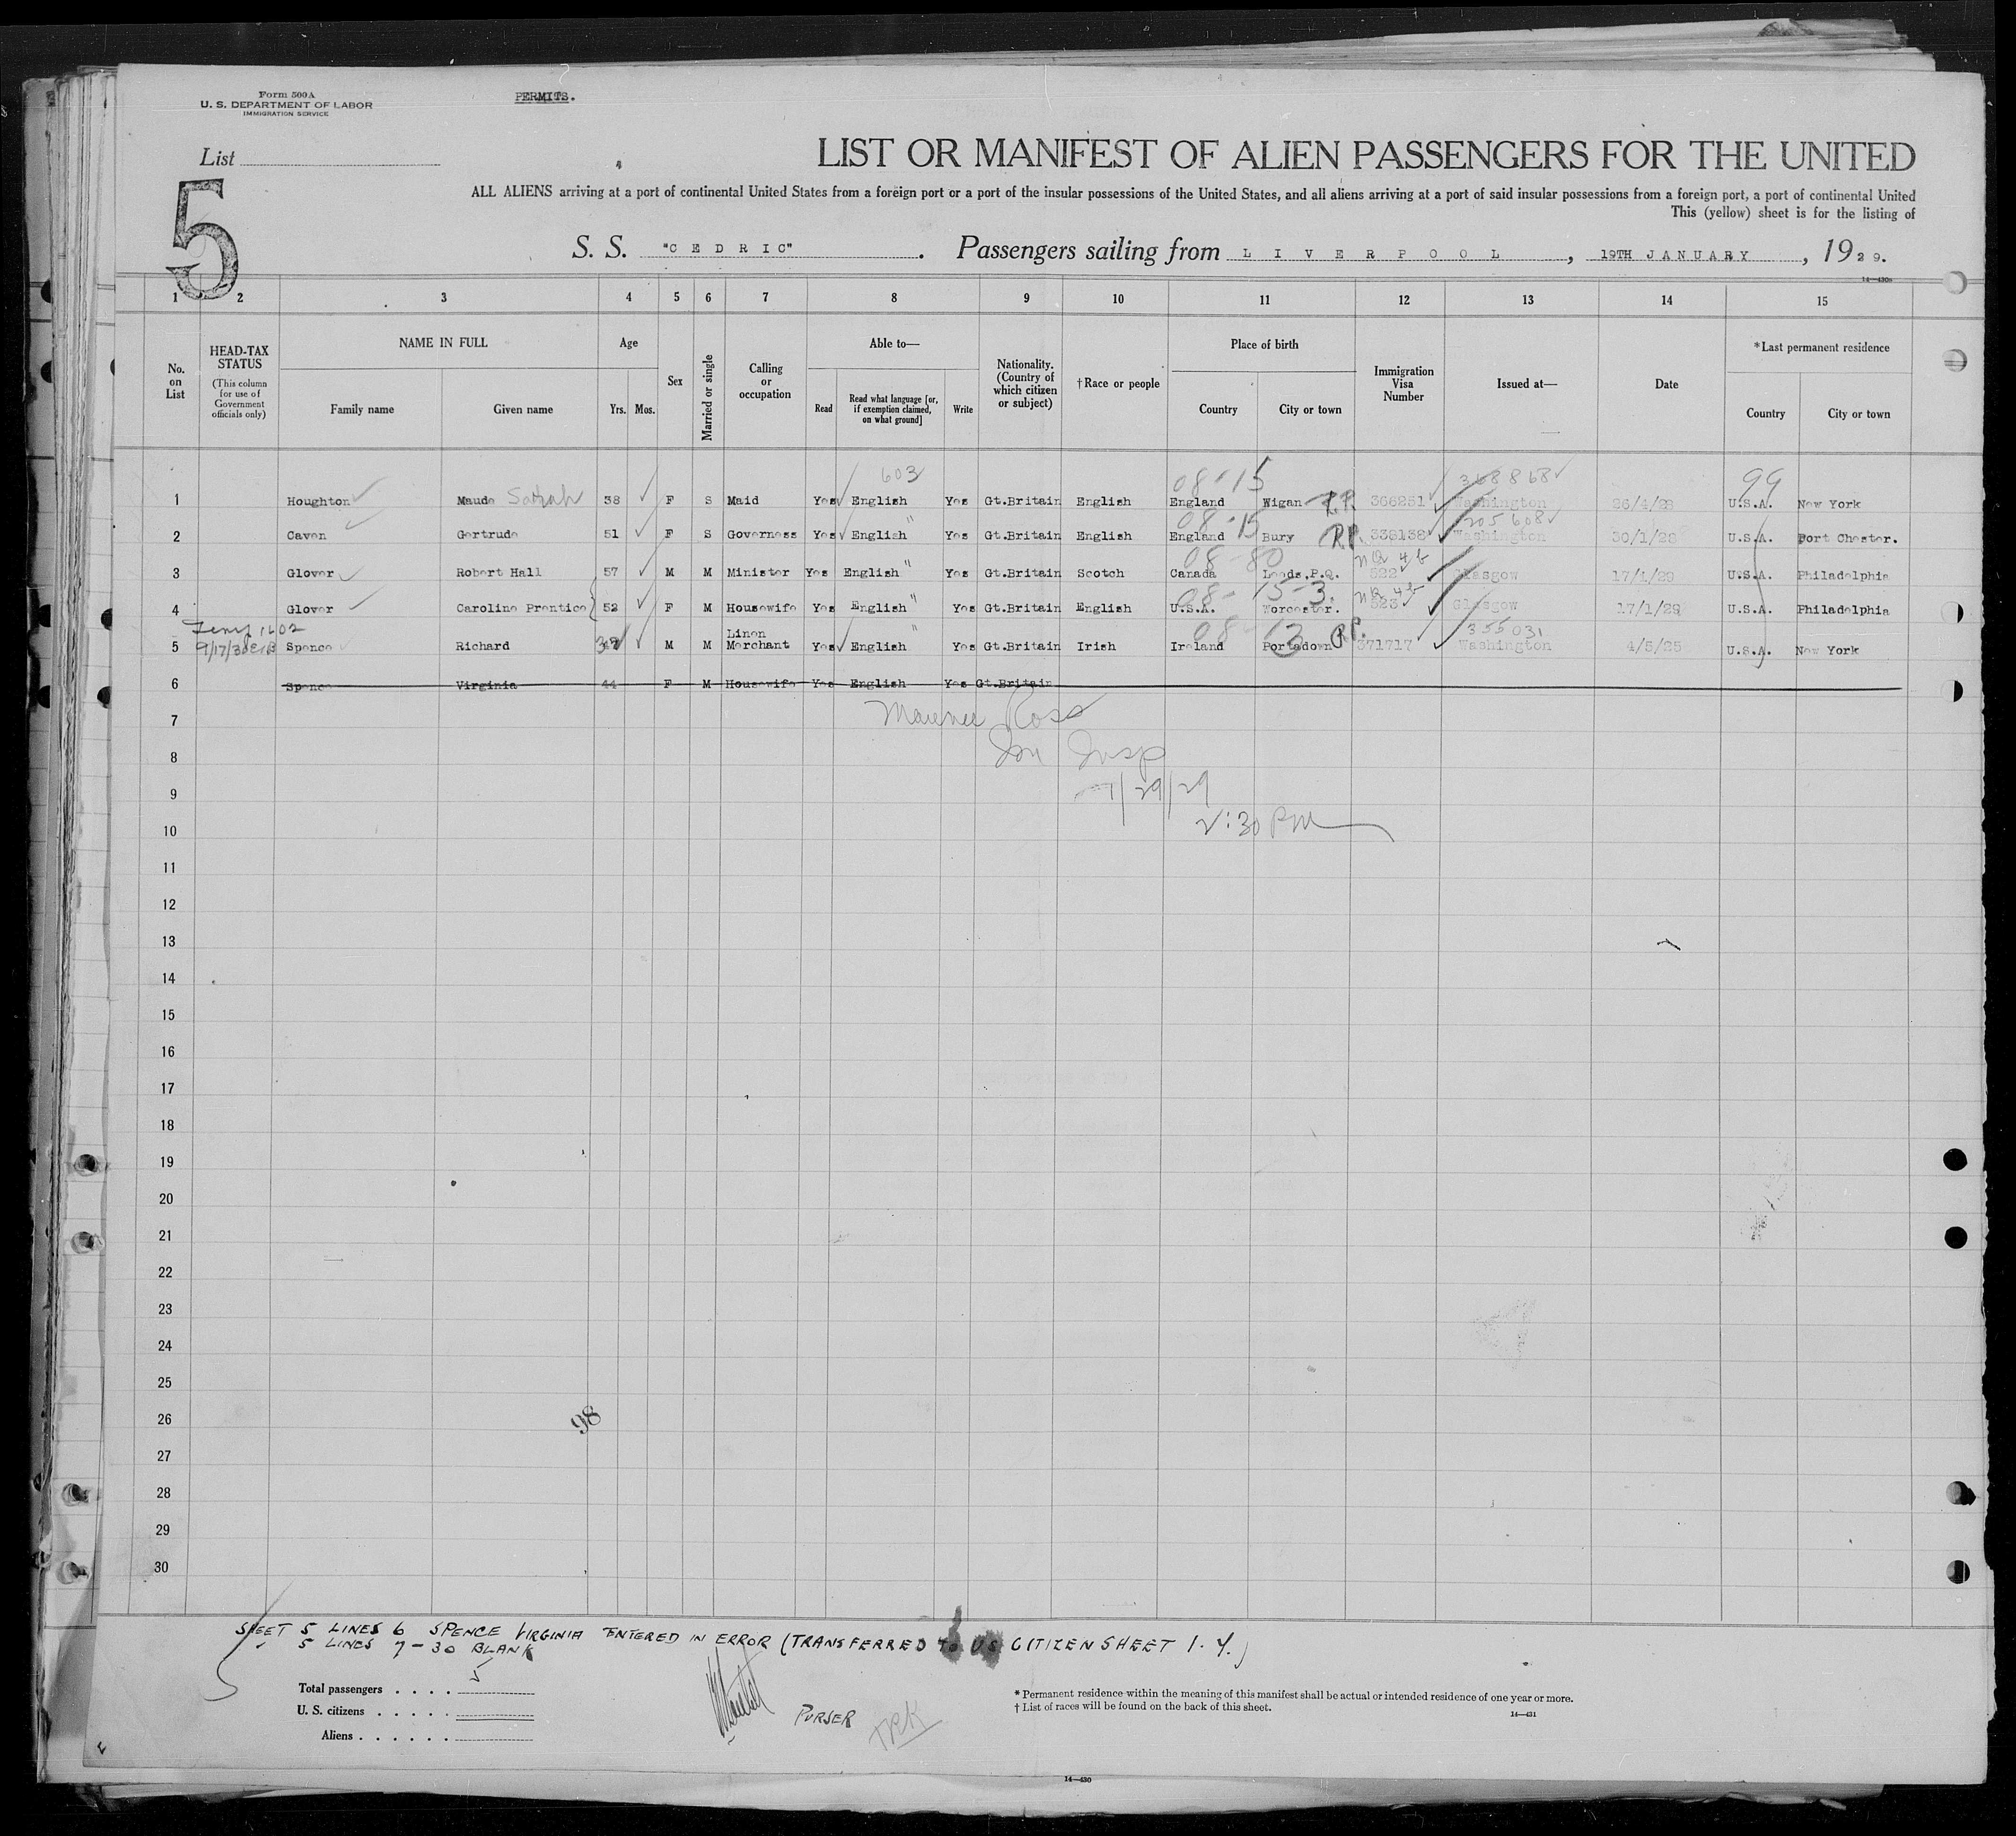 Form 500A
U. S. DEPARTMENT OF LABOR
IMMIGRATION SERVICE
PERMITS.
List
5
LIST OR MANIFEST OF ALIEN PASSENGERS FOR THE UNITED
ALL ALIENS arriving at a port of continental United States from a foreign port or a port of the insular possessions of the United States, and all aliens arriving at a port of said insular possessions from a foreign port, a port of continental United
This (yellow) sheet is for the listing of
S. S. "CEDRIC". Passengers sailing from LIVERPOOL, 19TH JANUARY, 1929.
14—430a
1 2 3 4 5 6 7 8 9 10 11 12 13 14 15
No. on List
HEAD-TAX STATUS (This column for use of Government officials only)
NAME IN FULL Family name Given name
Age Yrs. Mos.
Sex
Married or single
Calling or occupation
Able to— Read Read what language [or, if exemption claimed, on what ground] Write
Nationality. (Country of which citizen or subject)
†Race or people
Place of birth Country City or town
Immigration Visa Number
Issued at—
Date
*Last permanent residence Country City or town
603 08-15 368868 99
1 Houghton Maude Sarah 38 F S Maid Yes English Yes Gt.Britain English England Wigan R.P. 366251 Washington 26/4/28 U.S.A. New York
08-15 205608
2 Caven Gertrude 51 F S Governess Yes English " Yes Gt.Britain English England Bury R.P. 338138 Washington 30/1/28 U.S.A. Port Chester.
08-80 NQ 4b
3 Glover Robert Hall 57 M M Minister Yes English " Yes Gt.Britain Scotch Canada Leeds, P.Q. 522 Glasgow 17/1/29 U.S.A. Philadelphia
08-15-3. NQ 4b
4 Glover Caroline Prentice 52 F M Housewife Yes English " Yes Gt.Britain English U.S.A. Worcester. 523 Glasgow 17/1/29 U.S.A. Philadelphia
1602 08-13 R.P. 355031
9/17/30
5 Spence Richard M M Linen Merchant Yes English " Yes Gt.Britain Irish Ireland Portadown 371717 Washington 4/5/25 U.S.A. New York
6 Spence Virginia 44 F M Housewife Yes English Yes Gt.Britain
7 Maurice Ross
8 Im Insp
9 1/29/29
10 2:30 PM
11
12
13
14
15
16
17
18
19
20
21
22
23
24
25
26
98
27
28
29
30
SHEET 5 LINES 6 SPENCE VIRGINIA ENTERED IN ERROR (TRANSFERRED to US CITIZEN SHEET 1.4.)
" 5 LINES 7-30 BLANK
Total passengers . . . . 5
U. S. citizens . . . . .
Aliens . . . . . .
PURSER
* Permanent residence within the meaning of this manifest shall be actual or intended residence of one year or more.
† List of races will be found on the back of this sheet.
14—431
14—430